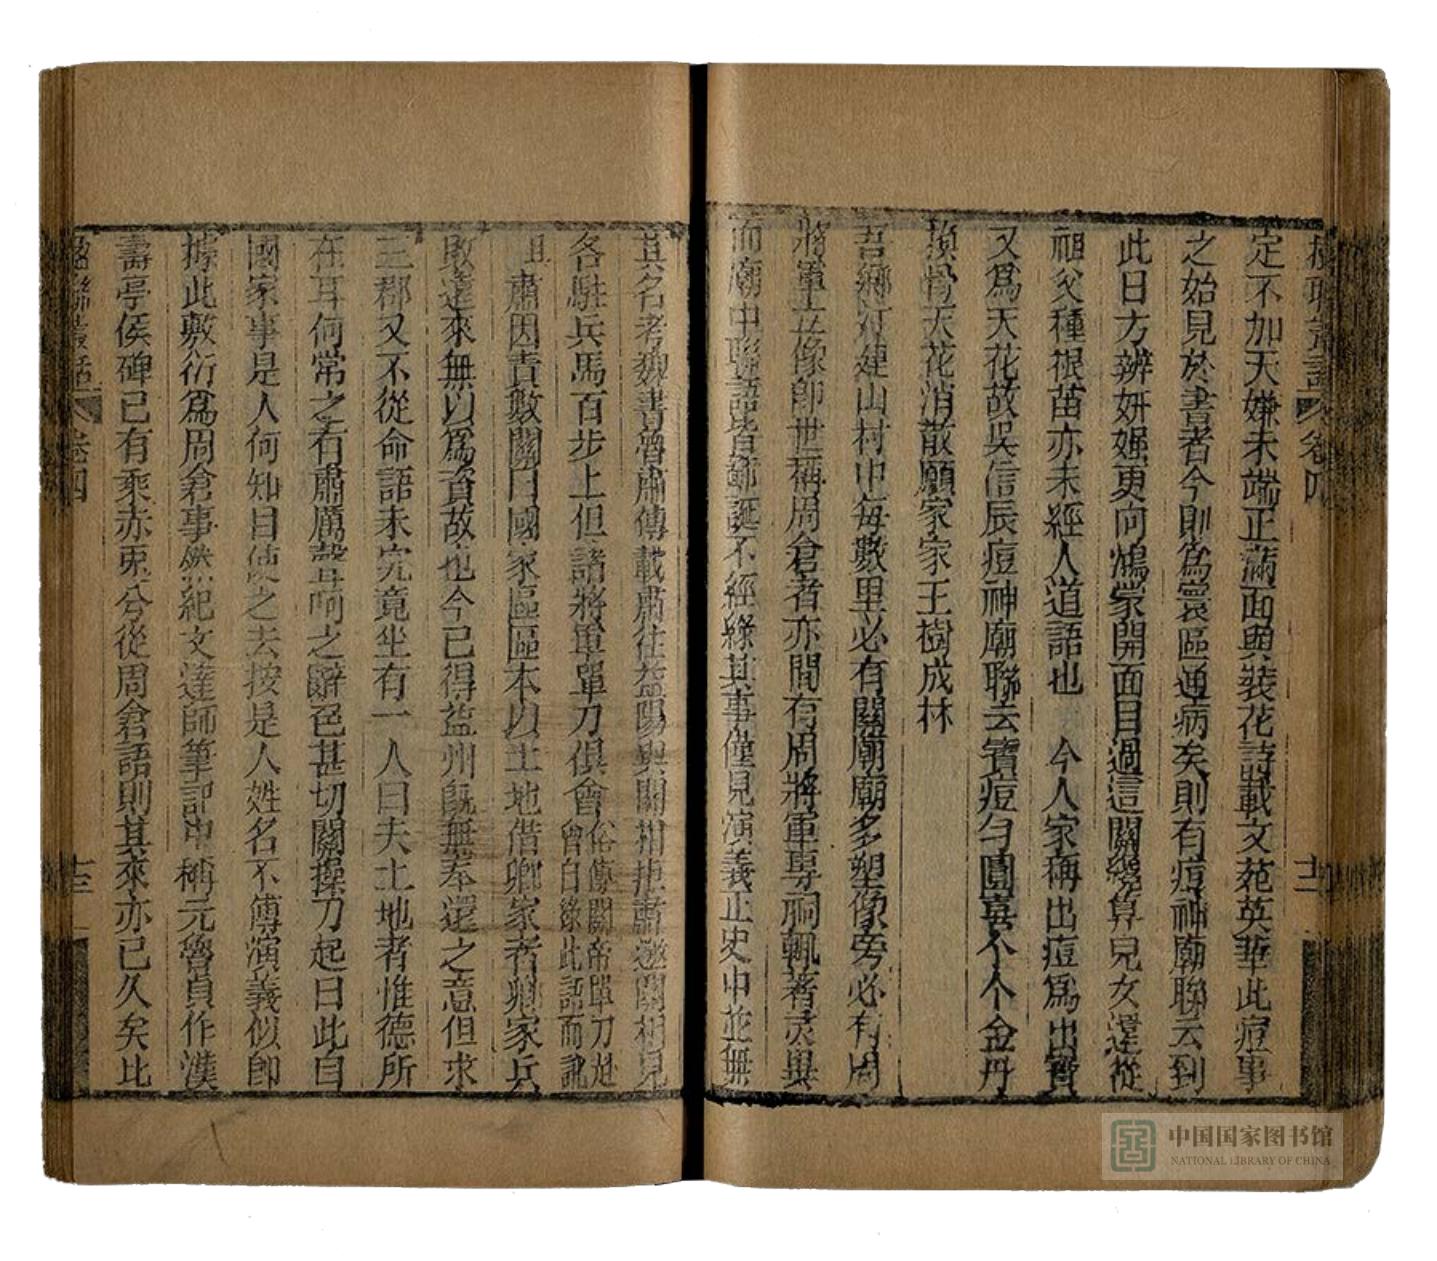 楹聯叢話 卷四 十二
定不加天嫌未端正滿面與裝花詩載文苑英華此痘事
之始見於書者今則爲寰區通病矣則有痘神廟聯云到
此日方辨妍媸更向鴻蒙開面目過這關纔算兒女還從
祖父種根苗亦未經人道語也 今人家稱出痘爲出寶
又爲天花故吳信辰痘神廟聯云寶痘勻圓喜个个金丹
換骨天花消散願家家玉樹成林
吾鄉河連山村中每數里必有關廟廟多塑像旁必有周
將軍立像卽世稱周倉者亦間有周將軍專祠輒著灵與
而廟中聯語皆鄙誕不經緣其事僅見演義正史中並無
其名考魏書魯肅傳載肅住益陽與關相拒肅邀關相見
各駐兵馬百步上但諸將軍單刀俱會俗傳關帝單刀赴會自緣此語而訛
且肅因責數關曰國家區區本以土地借卿家者卿家兵
敗遠來無以爲資故也今已得益州旣無奉還之意但求
三郡又不從命語未究竟坐有一人曰夫土地者惟德所
在耳何常之有肅厲聲呵之辭色甚切關操刀起曰此自
國家事是人何知目使之去按是人姓名不傳演義似卽
據此敷衍爲周倉事然紀文達師筆記中稱元魯貞作漢
壽亭侯碑已有乘赤兎兮從周倉語則其來亦已久矣比
楹聯叢話 卷四 十三
中国国家图书馆
NATIONAL LIBRARY OF CHINA